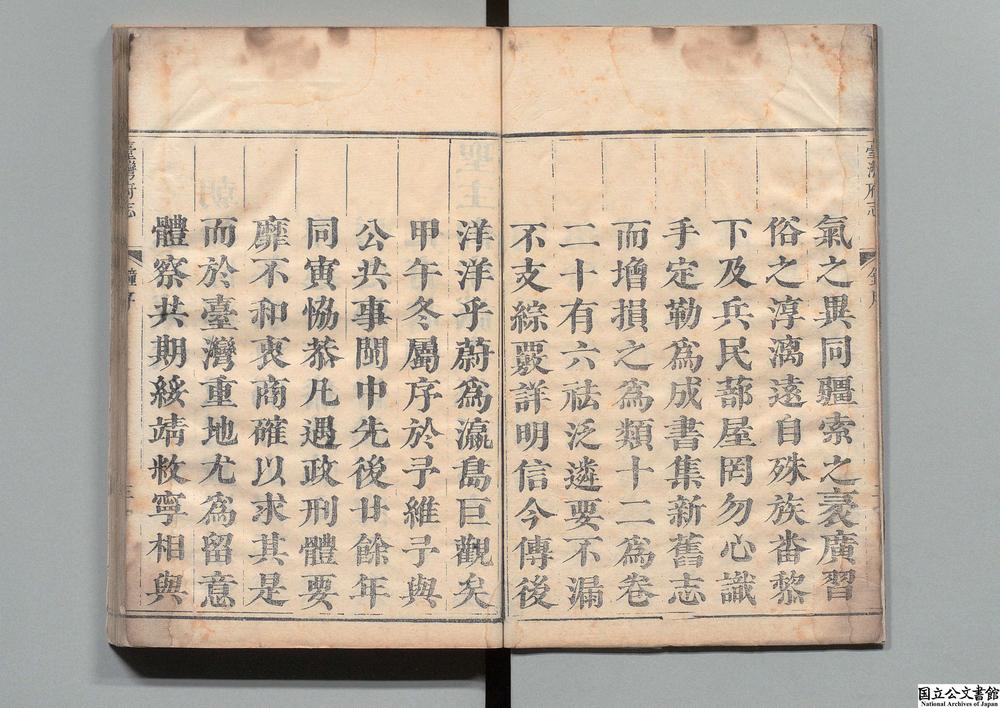 臺灣府志
氣之異同疆索之袤廣習
俗之淳漓遠自殊族畨黎
下及兵民蔀屋罔勿心識
手定勒為成書集新舊志
而增損之為類十二為卷
二十有六祛泛遴要不漏
不支綜覈詳明信今傳後
洋洋乎蔚為瀛島巨觀矣
甲午冬屬序於予維予與
公共事閩中先後廿餘年
同寅恊恭凡遇政刑體要
靡不和衷商確以求其是
而於臺灣重地尤為留意
體察共期綏靖敉寧相與
臺灣府志
鐘序
国立公文書館
National Archives of Japan